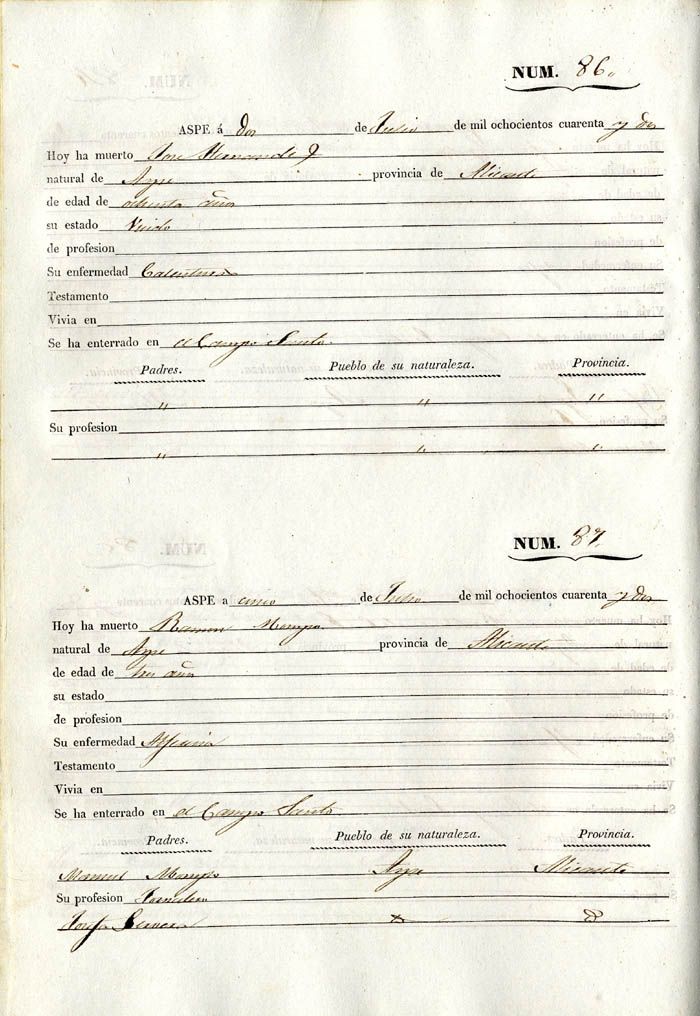 NUM. 86.
ASPE á dos de Julio de mil ochocientos cuarenta y dos
Hoy ha muerto Jose Hernandez
natural de Aspe provincia de Alicante
de edad de ochenta años
su estado Viudo
de profesion
Su enfermedad Calentura
Testamento
Vivia en
Se ha enterrado en el Campo Santo
Padres. Pueblo de su naturaleza. Provincia.
" " "
Su profesion
" " "
NUM. 87.
ASPE a cinco de Julio de mil ochocientos cuarenta y dos
Hoy ha muerto Ramon
natural de Aspe provincia de Alicante
de edad de tres años
su estado
de profesion
Su enfermedad
Testamento
Vivia en
Se ha enterrado en el Campo Santo
Padres. Pueblo de su naturaleza. Provincia.
Manuel Aspe Alicante
Su profesion Jornalero
Josefa